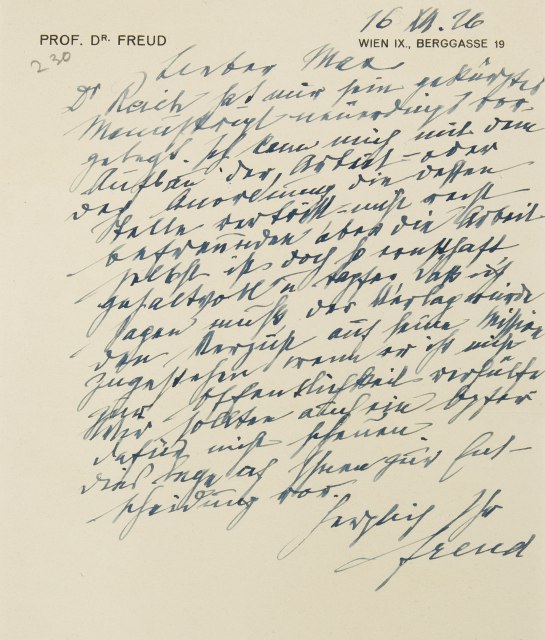 PROF. DR. FREUD
WIEN IX., BERGGASSE 19
16 XII. 26
230
Lieber Max
Dr Reich hat mir sein gekürztes
Manuskript neuerdings vor
gelegt. Ich kann mich mit dem
Aufbau der Arbeit – oder
der Anordnung die dessen
Stelle vertritt – nicht recht
befreunden aber die Arbeit
selbst ist doch so ernsthaft
gehaltvoll u tapfer daß ich
sagen muß der Verlag würde
den Verzicht auf seine Mission
zugestehen wenn er ihr nicht
zur Öffentlichkeit verhülfe
Wir sollten auch ein Opfer
dafür nicht scheuen
Dies lege ich Ihnen zur Ent-
scheidung vor.
Herzlich Ihr
Freud